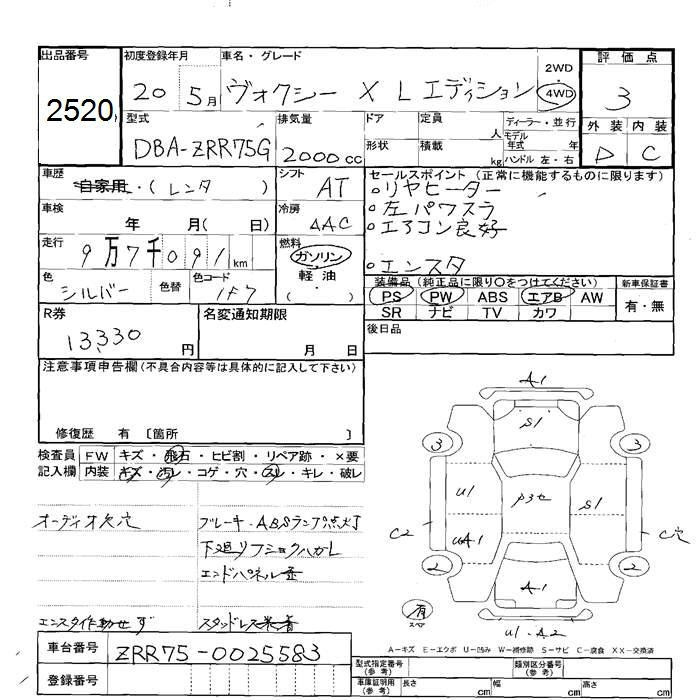 出品番号 初度登録年月 車名・グレード 評価点
2520 20 5月 ヴォクシー X Lエディション 2WD 4WD 3
型式 排気量 ドア 定員 人 ディーラー・並行 外装 内装
DBA-ZRR75G 2000cc 形状 積載 kg モデル年式 年 ハンドル 左・右 D C
車歴 自家用・(レンタ) シフト AT セールスポイント (正常に機能するものに限ります)
○リヤヒーター
車検 年 月( 日) 冷房 AAC ○左パワスラ
○エアコン良好
走行 9万7千091km 燃料 ガソリン・軽油・( ) ○エンスタ
色 シルバー 色替 色コード 1F7 装備品 (純正品に限り○をつけてください) 新車保証書
PS PW ABS エアB AW 有・無
SR ナビ TV カワ
R券 13,330円 名変通知期限 月 日 後日品
注意事項申告欄(不具合内容等は具体的に記入して下さい)
修復歴 有 〔箇所 〕
検査員 FW キズ・飛石・ヒビ割・リペア跡・×要
記入欄 内装 キズ・汚レ・コゲ・穴・スレ・キレ・破レ
オーディオ欠穴 ブレーキ・ABSランプ点灯
下廻り
エンドパネル
エンスタ作動せず スタッドレス
車台番号 ZRR75-0025583
登録番号
A1
S1
3 3
U1 S1
C2 UA1 C穴
2 2
A1
有 スペア
U1・A2
A－キズ E－エクボ U－凹み W－補修跡 S－サビ C－腐食 XX－交換済
型式指定番号(参考) 類別区分番号(参考)
車庫証明用(参考) 長さ cm 幅 cm 高さ cm